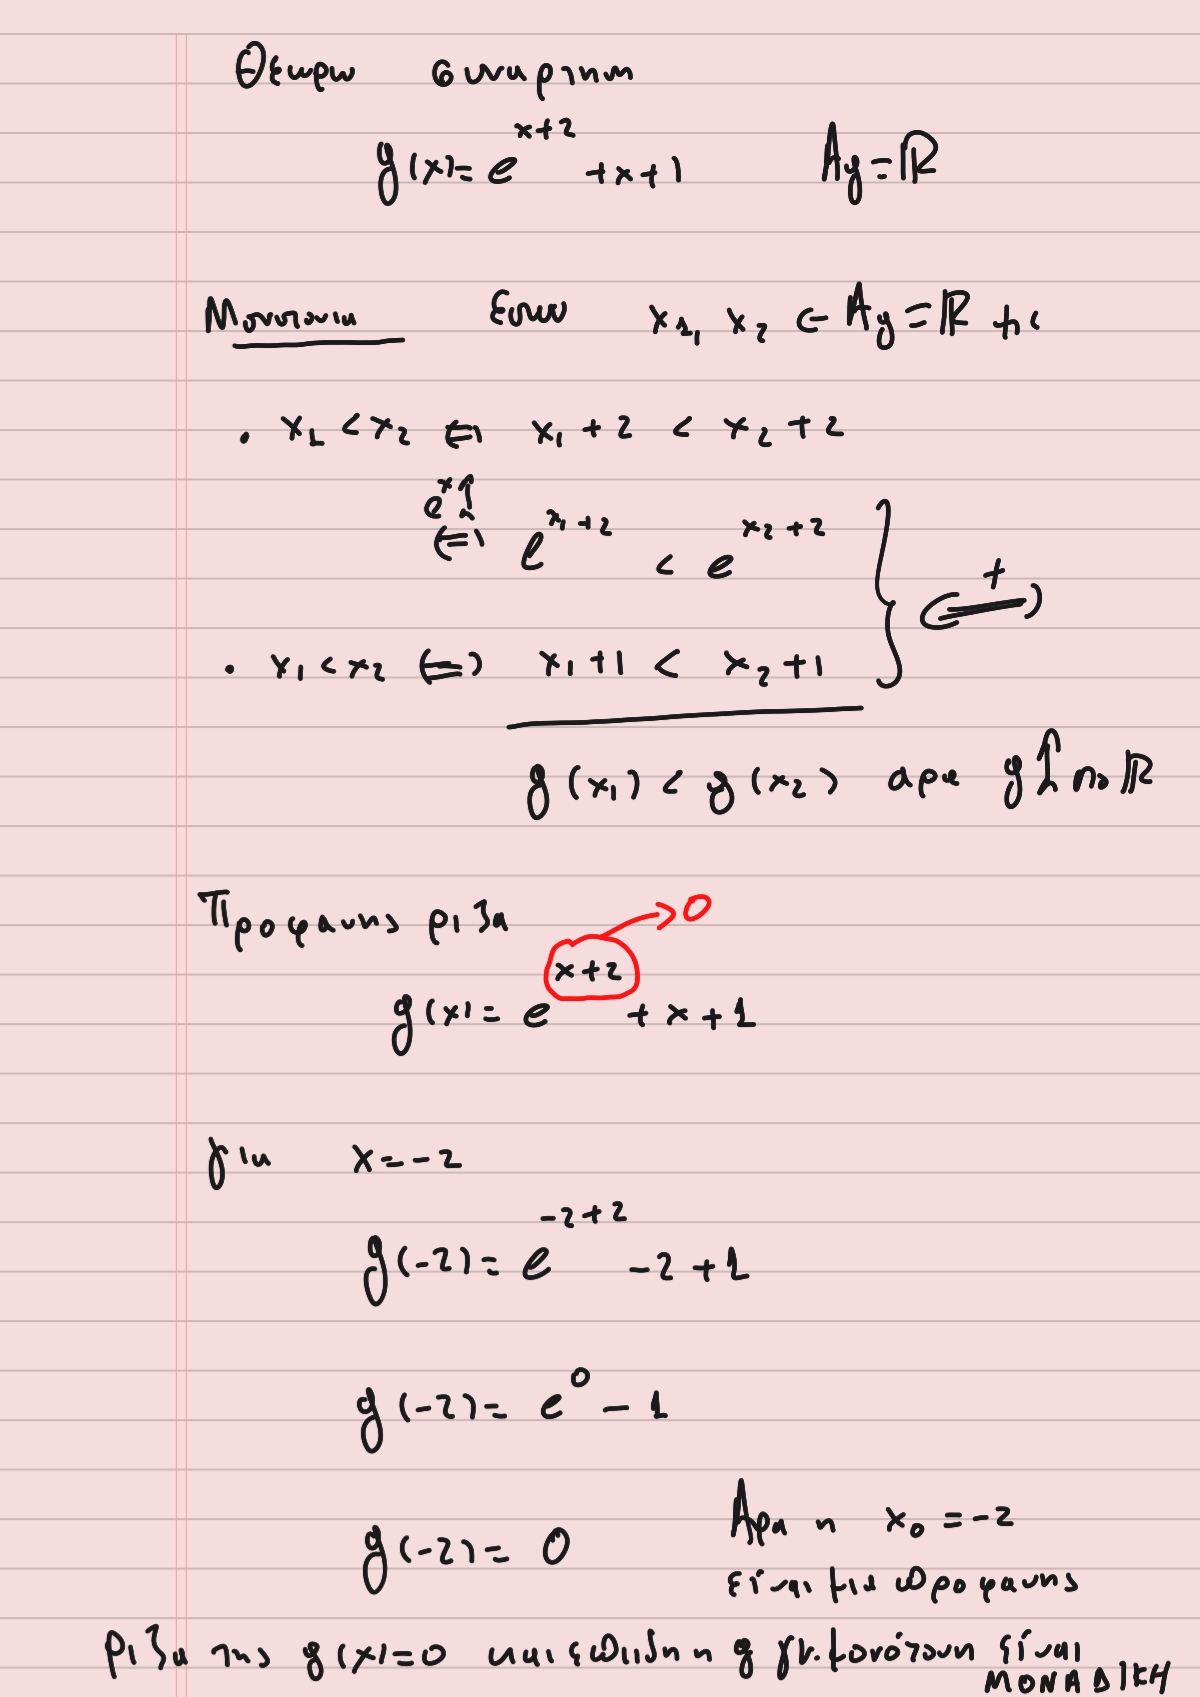 Θεωρω συναρτηση
g(x) = e^{x+2} + x + 1 A_g = ℝ
Μονοτονια Εστω x_1, x_2 ∈ A_g = ℝ με
• x_1 < x_2 ⇔ x_1 + 2 < x_2 + 2
e^x ↑ ⇔ e^{x_1+2} < e^{x_2+2}
• x_1 < x_2 ⇔ x_1 + 1 < x_2 + 1 } ⇔ +
g(x_1) < g(x_2) αρα g ↑ στο ℝ
Προφανης ριζα
→ 0
g(x) = e^{x+2} + x + 1
για x = -2
g(-2) = e^{-2+2} - 2 + 1
g(-2) = e^0 - 1
g(-2) = 0 Αρα η x_0 = -2
είναι μια προφανης
ριζα της g(x) = 0 και επειδη η g γν. μονότονη είναι
ΜΟΝΑΔΙΚΗ